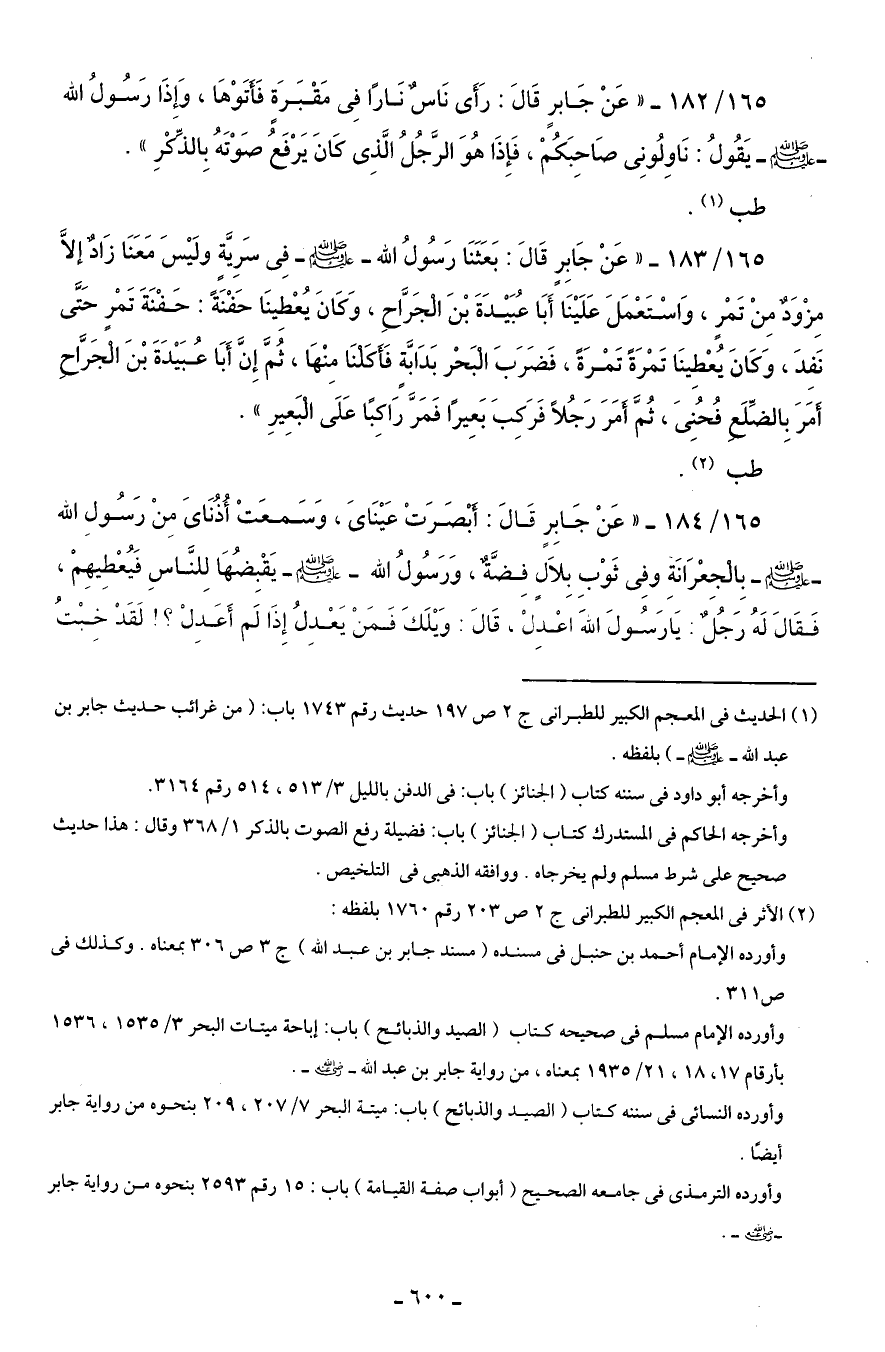 ١٦٥/ ١٨٢ ـ « عَنْ جَـابِرٍ قَالَ : رَأَى نَاسٌ نَـارًا فِى مَقْبَـرَةٍ فَأَتَوْهَا ، وَإِذَا رَسُـولُ الله
ـ ﷺ ـ يَقُولُ : نَاوِلُونِى صَاحِبَكُمْ ، فَإِذَا هُوَ الرَّجُلُ الَّذِى كَانَ يَرْفَعُ صَوْتَهُ بِالذِّكْرِ » .
طب (١) .
١٦٥/ ١٨٣ ـ « عَنْ جَابِرٍ قَالَ : بَعَثَنَا رَسُولُ الله ـ ﷺ ـ فِى سَرِيَّةٍ ولَيْسَ مَعَنَا زَادٌ إِلاَّ
مِزْوَدٌ مِنْ تَمْرٍ ، وَاسْـتَعْمَلَ عَلَيْنَا أَبَا عُبَيْـدَةَ بْنَ الْجَرَّاحِ ، وَكَانَ يُعْطِينَا حَفْنَةً : حَـفْنَةَ تَمْرٍ حَتَّى
نَفِدَ ، وَكَانَ يُعْطِينَا تَمْرَةً تَمْـرَةً ، فَضَرَبَ الْبَحْرُ بِدَابَّةٍ فَأَكَلْنَا مِنْهَا ، ثُمَّ إِنَّ أَبَا عُـبَيْدَةَ بْنَ الْجَرَّاحِ
أَمَرَ بِالضِّلَعِ فَحُنِىَ ، ثُمَّ أَمَرَ رَجُلاً فَرَكِبَ بَعِيرًا فَمَرَّ رَاكِبًا عَلَى الْبَعِيرِ » .
طب (٢) .
١٦٥/ ١٨٤ ـ « عَنْ جَـابِرٍ قَـالَ : أَبْصَرَتْ عَيْنَاىَ ، وَسَـمِعَتْ أُذُنَاىَ مِنْ رَسُـولِ الله
ـ ﷺ ـ بِالْجِعْرَانَةِ وفِى ثَوْبِ بِلاَلٍ فِـضَّةٌ ، وَرَسُولُ الله ـ ﷺ ـ يَقْبِضُهَا لِلنَّاسِ فَيُعْطِيهِمْ ،
فَـقَالَ لَهُ رَجُلٌ : يَارَسُـولَ الله اعْدِلْ ، قَالَ : وَيْلَكَ فَـمَنْ يَعْـدِلُ إِذَا لَم أَعَـدِلْ ؟! لَقَدْ خِـبْتُ
(١) الحديث فى المعـجم الكبير للطبـرانى ج ٢ ص ١٩٧ حديث رقم ١٧٤٣ باب: ( من غرائب حـديث جابر بن
عبد الله ـ ﷺ ـ ) بلفظه .
وأخرجه أبو داود فى سننه كتاب ( الجنائز ) باب: فى الدفن بالليل ٣/ ٥١٣ ، ٥١٤ رقم ٣١٦٤.
وأخرجه الحاكم فى المستدرك كتـاب ( الجنائز ) باب: فضيلة رفع الصوت بالذكر ١/ ٣٦٨ وقال : هذا حديث
صحيح على شرط مسلم ولم يخرجاه . ووافقه الذهبى فى التلخيص .
(٢) الأثر فى المعجم الكبير للطبرانى ج ٢ ص ٢٠٣ رقم ١٧٦٠ بلفظه :
وأورده الإمـام أحـمد بن حنبـل فى مسنـده ( مسند جـابر بن عـبـد الله ) ج ٣ ص ٣٠٦ بمعناه . وكـذلك فى
ص٣١١ .
وأورده الإمام مسلـم فى صحيحه كـتاب ( الصيد والذبائـح ) باب: إباحة ميتـات البحر ٣/ ١٥٣٥ ، ١٥٣٦
بأرقام ١٧، ١٨ ، ٢١/ ١٩٣٥ بمعناه ، من رواية جابر بن عبد الله ـ رضي الله عنه ـ .
وأورده النسائى فى سننه كـتاب ( الصيـد والذبائح ) باب: ميتـة البحر ٧/ ٢٠٧ ، ٢٠٩ بنحـوه من رواية جابر
أيضًا .
وأورده الترمـذى فى جامعه الصحيح ( أبواب صفـة القيامة ) باب : ١٥ رقم ٢٥٩٣ بنحوه مـن رواية جابر
ـ رضي الله عنه ـ .
ـ ٦٠٠ ـ